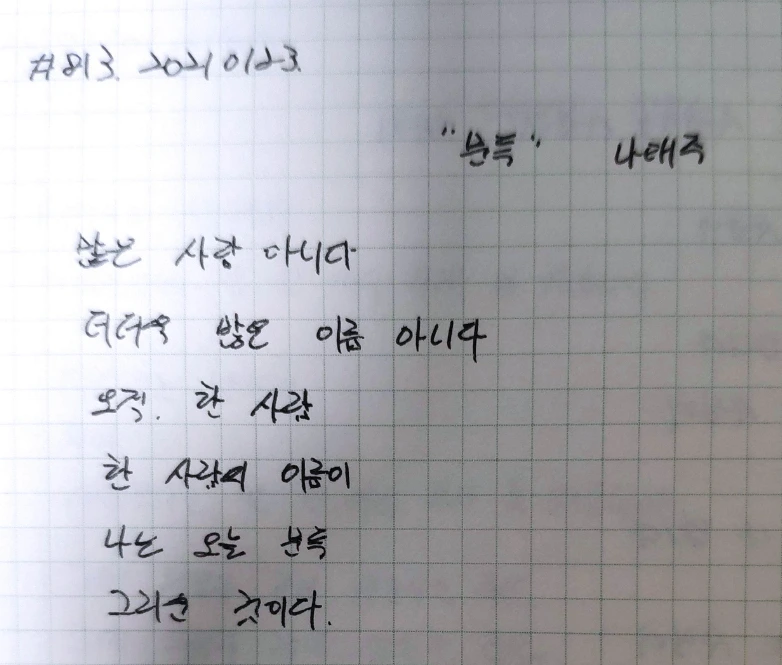 #813. 20210123.
"문득" 나태주
많은 사람 아니다
더더욱 많은 이름 아니다
오직. 한 사람
한 사람의 이름이
나는 오늘 문득
그리운 것이다.